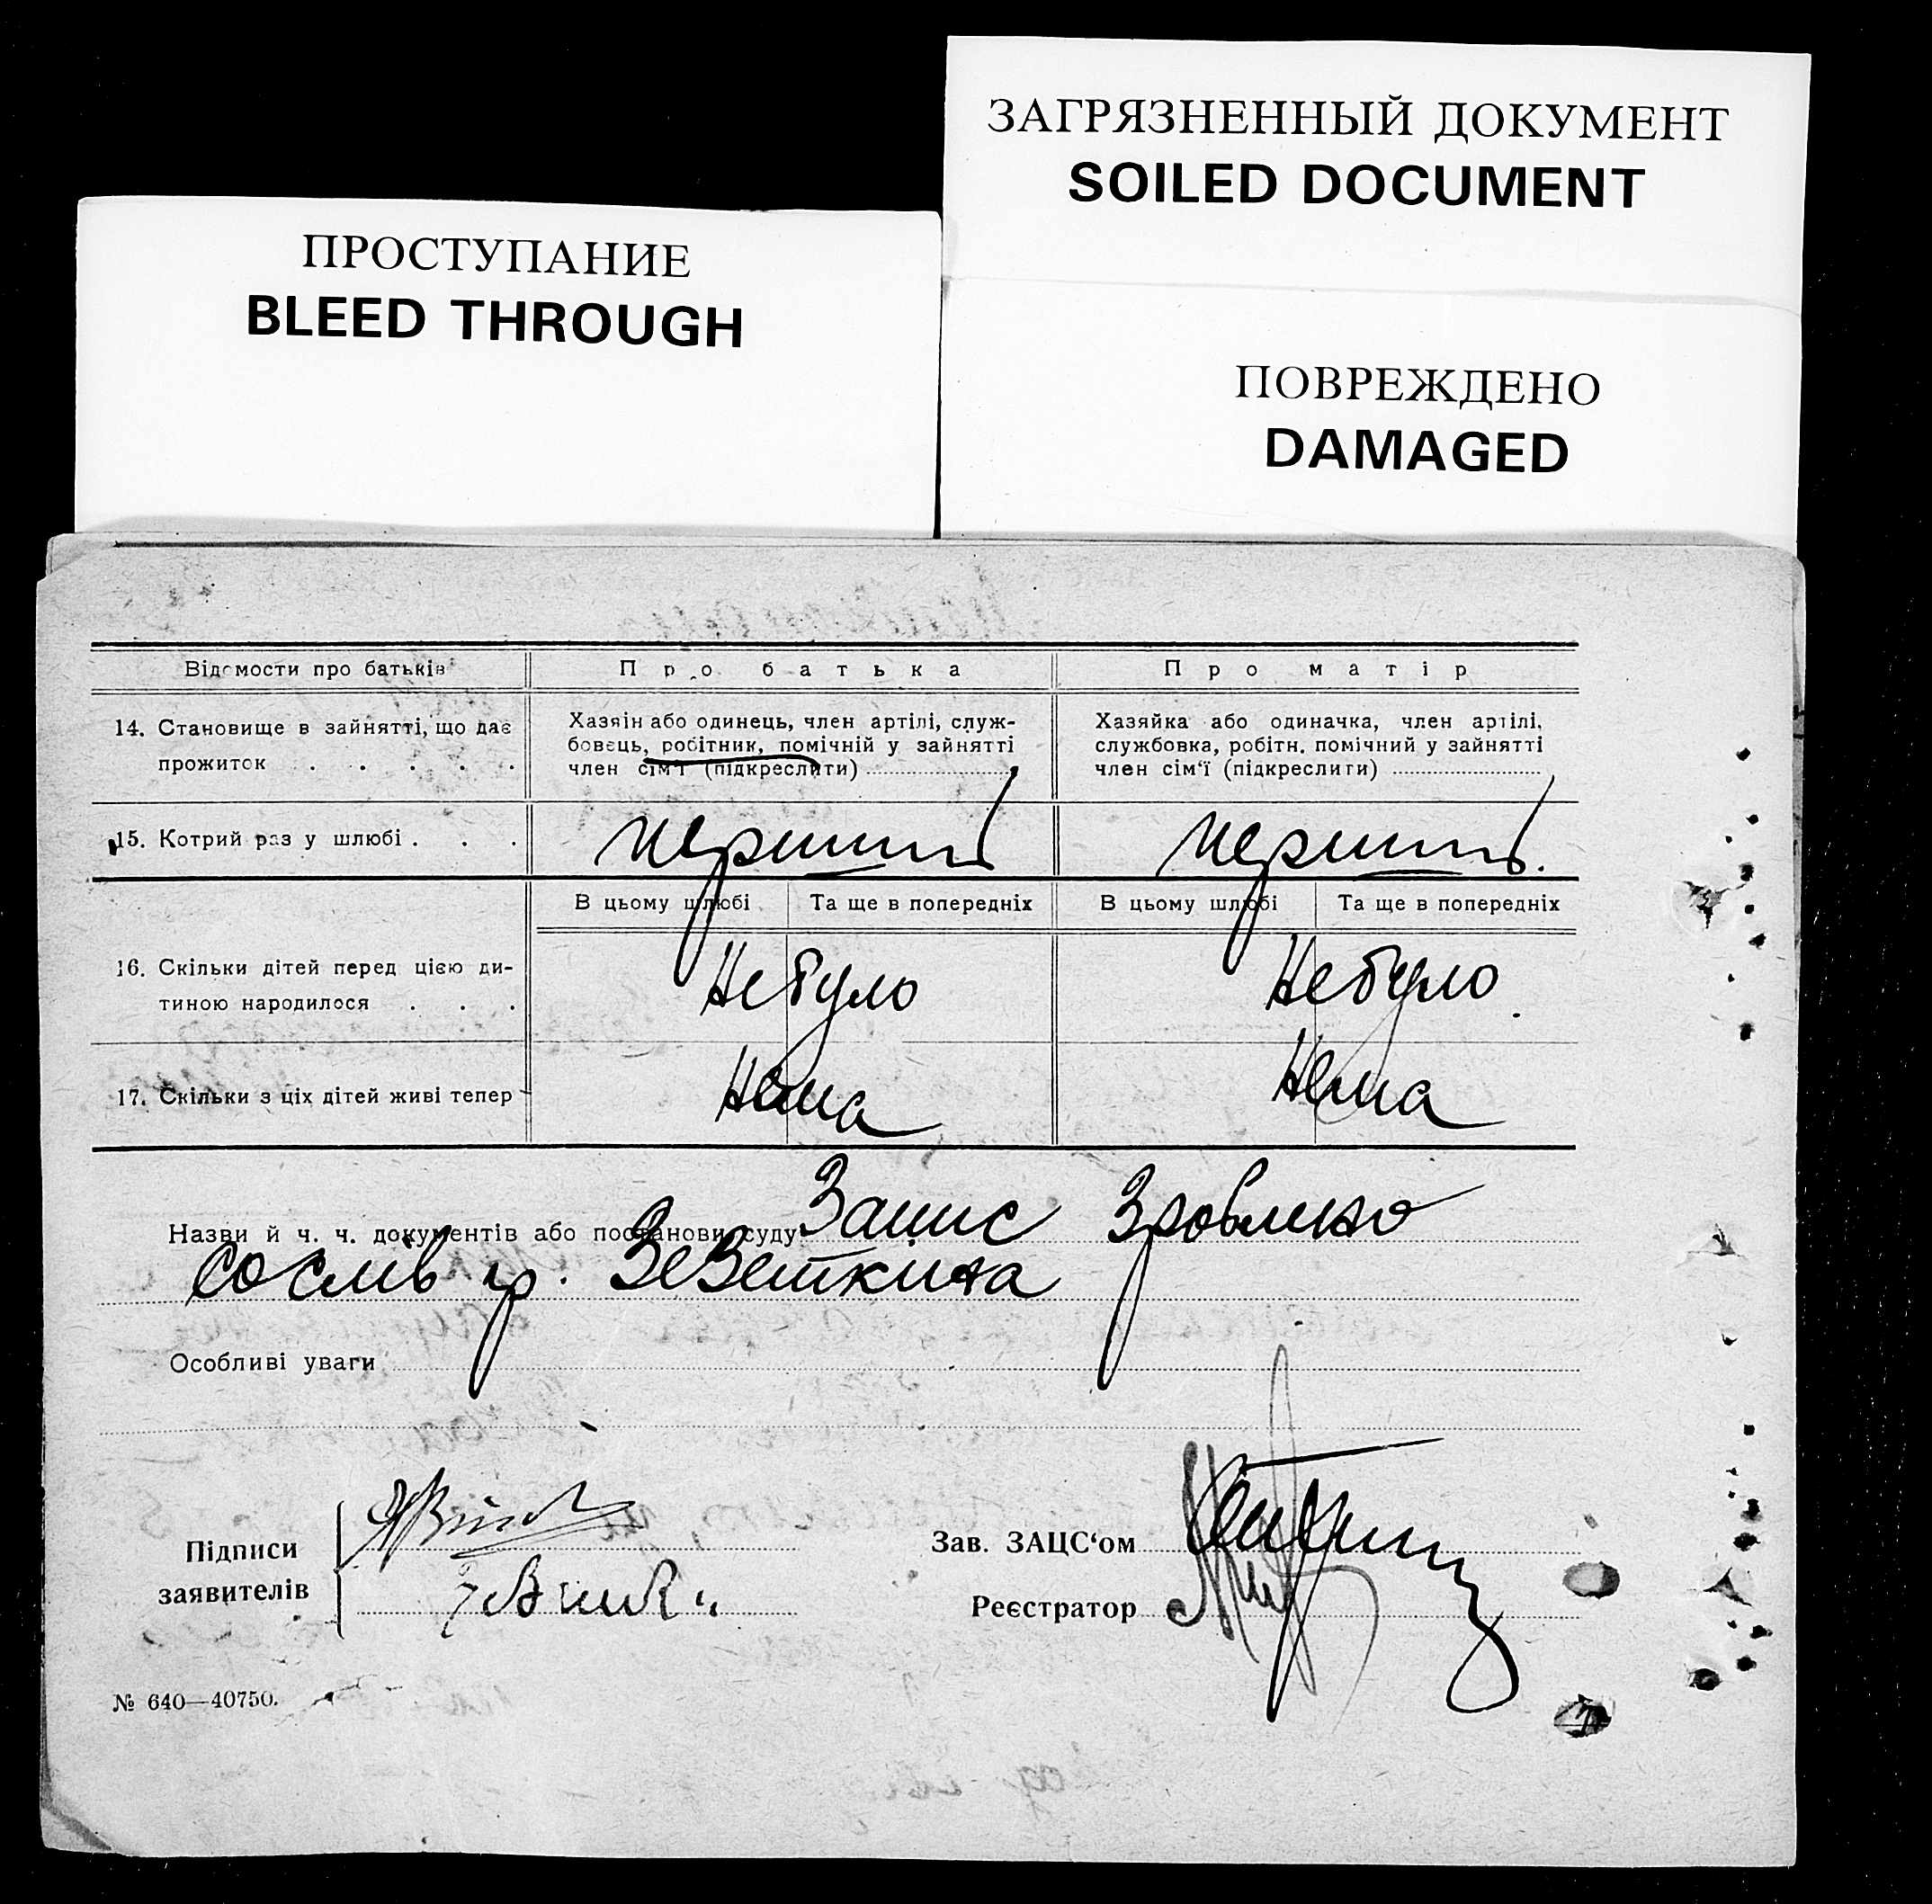 ЗАГРЯЗНЕННЫЙ ДОКУМЕНТ
SOILED DOCUMENT
ПРОСТУПАНИЕ
BLEED THROUGH
ПОВРЕЖДЕНО
DAMAGED
Відомости про батьків
Про батька
Про матір
14. Становище в зайнятті, що дає
прожиток . . . . .
Хазяін або одинець, член артілі, служ-
бовець, робітник, помічній у зайнятті
член сім'ї (підкреслити)
Хазяйка або одиначка, член артілі,
службовка, робітн. помічний у зайнятті
член сім'ї (підкреслити)
15. Котрий раз у шлюбі . . .
перший
перший.
В цьому шлюбі
Та ще в попередніх
В цьому шлюбі
Та ще в попередніх
16. Скільки дітей перед цією ди-
тиною народилося . . .
Небуло
Небуло
17. Скільки з ціх дітей живі тепер
Нема
Нема
Назви й ч. ч. документів або постанови суду Запис Зроблено
со слів гр.
Особливі уваги
Підписи
заявителів
Зав. ЗАЦС'ом
Реєстратор
№ 640—40750.